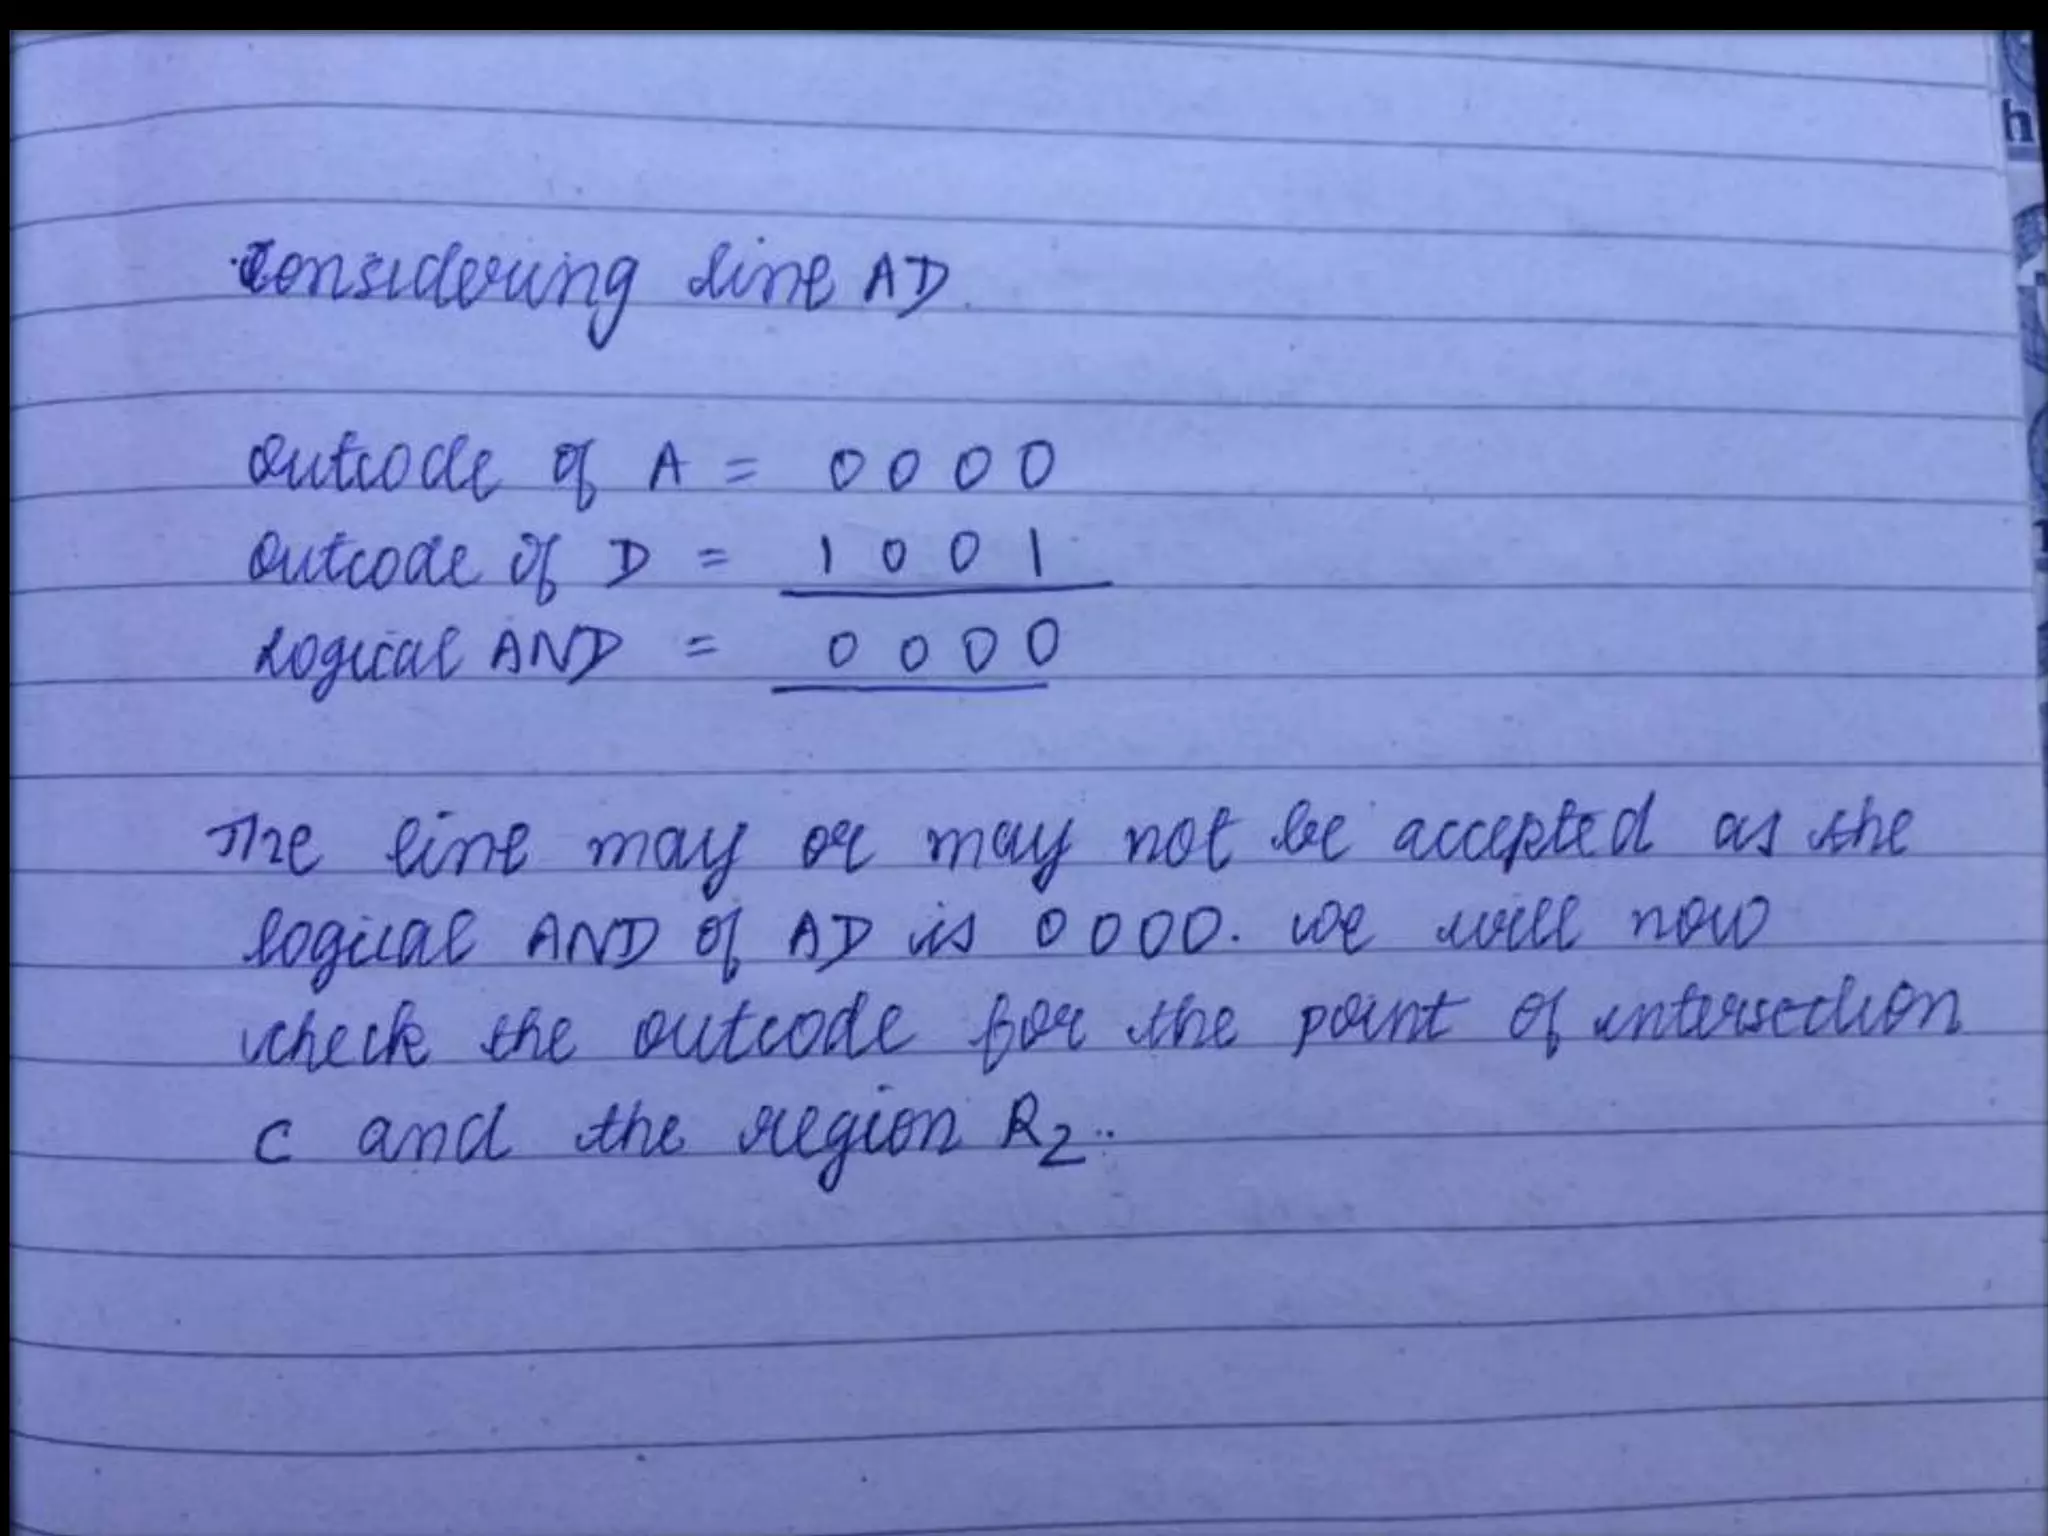 Considering line AD.
Outcode of A = 0 0 0 0
Outcode of D = 1 0 0 1
Logical AND = 0 0 0 0
The line may or may not be accepted as the
logical AND of AD is 0000. We will now
check the outcode for the point of intersection
C and the region R2..
h